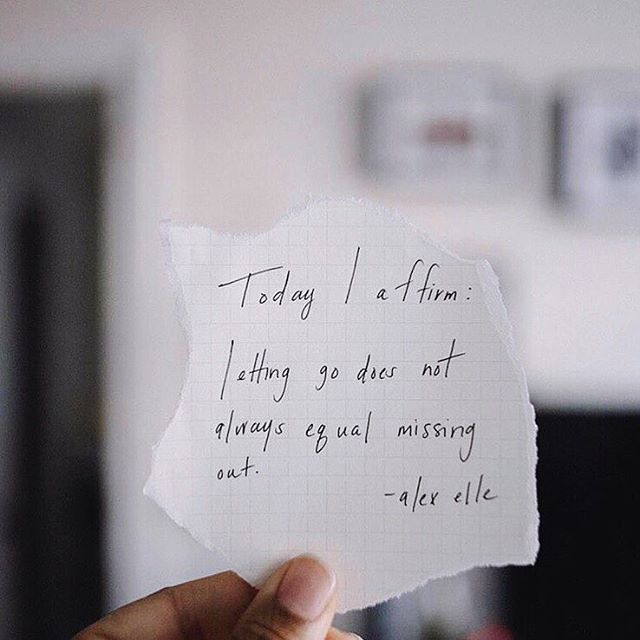 Today I affirm:
letting go does not
always equal missing
out.
-alex elle